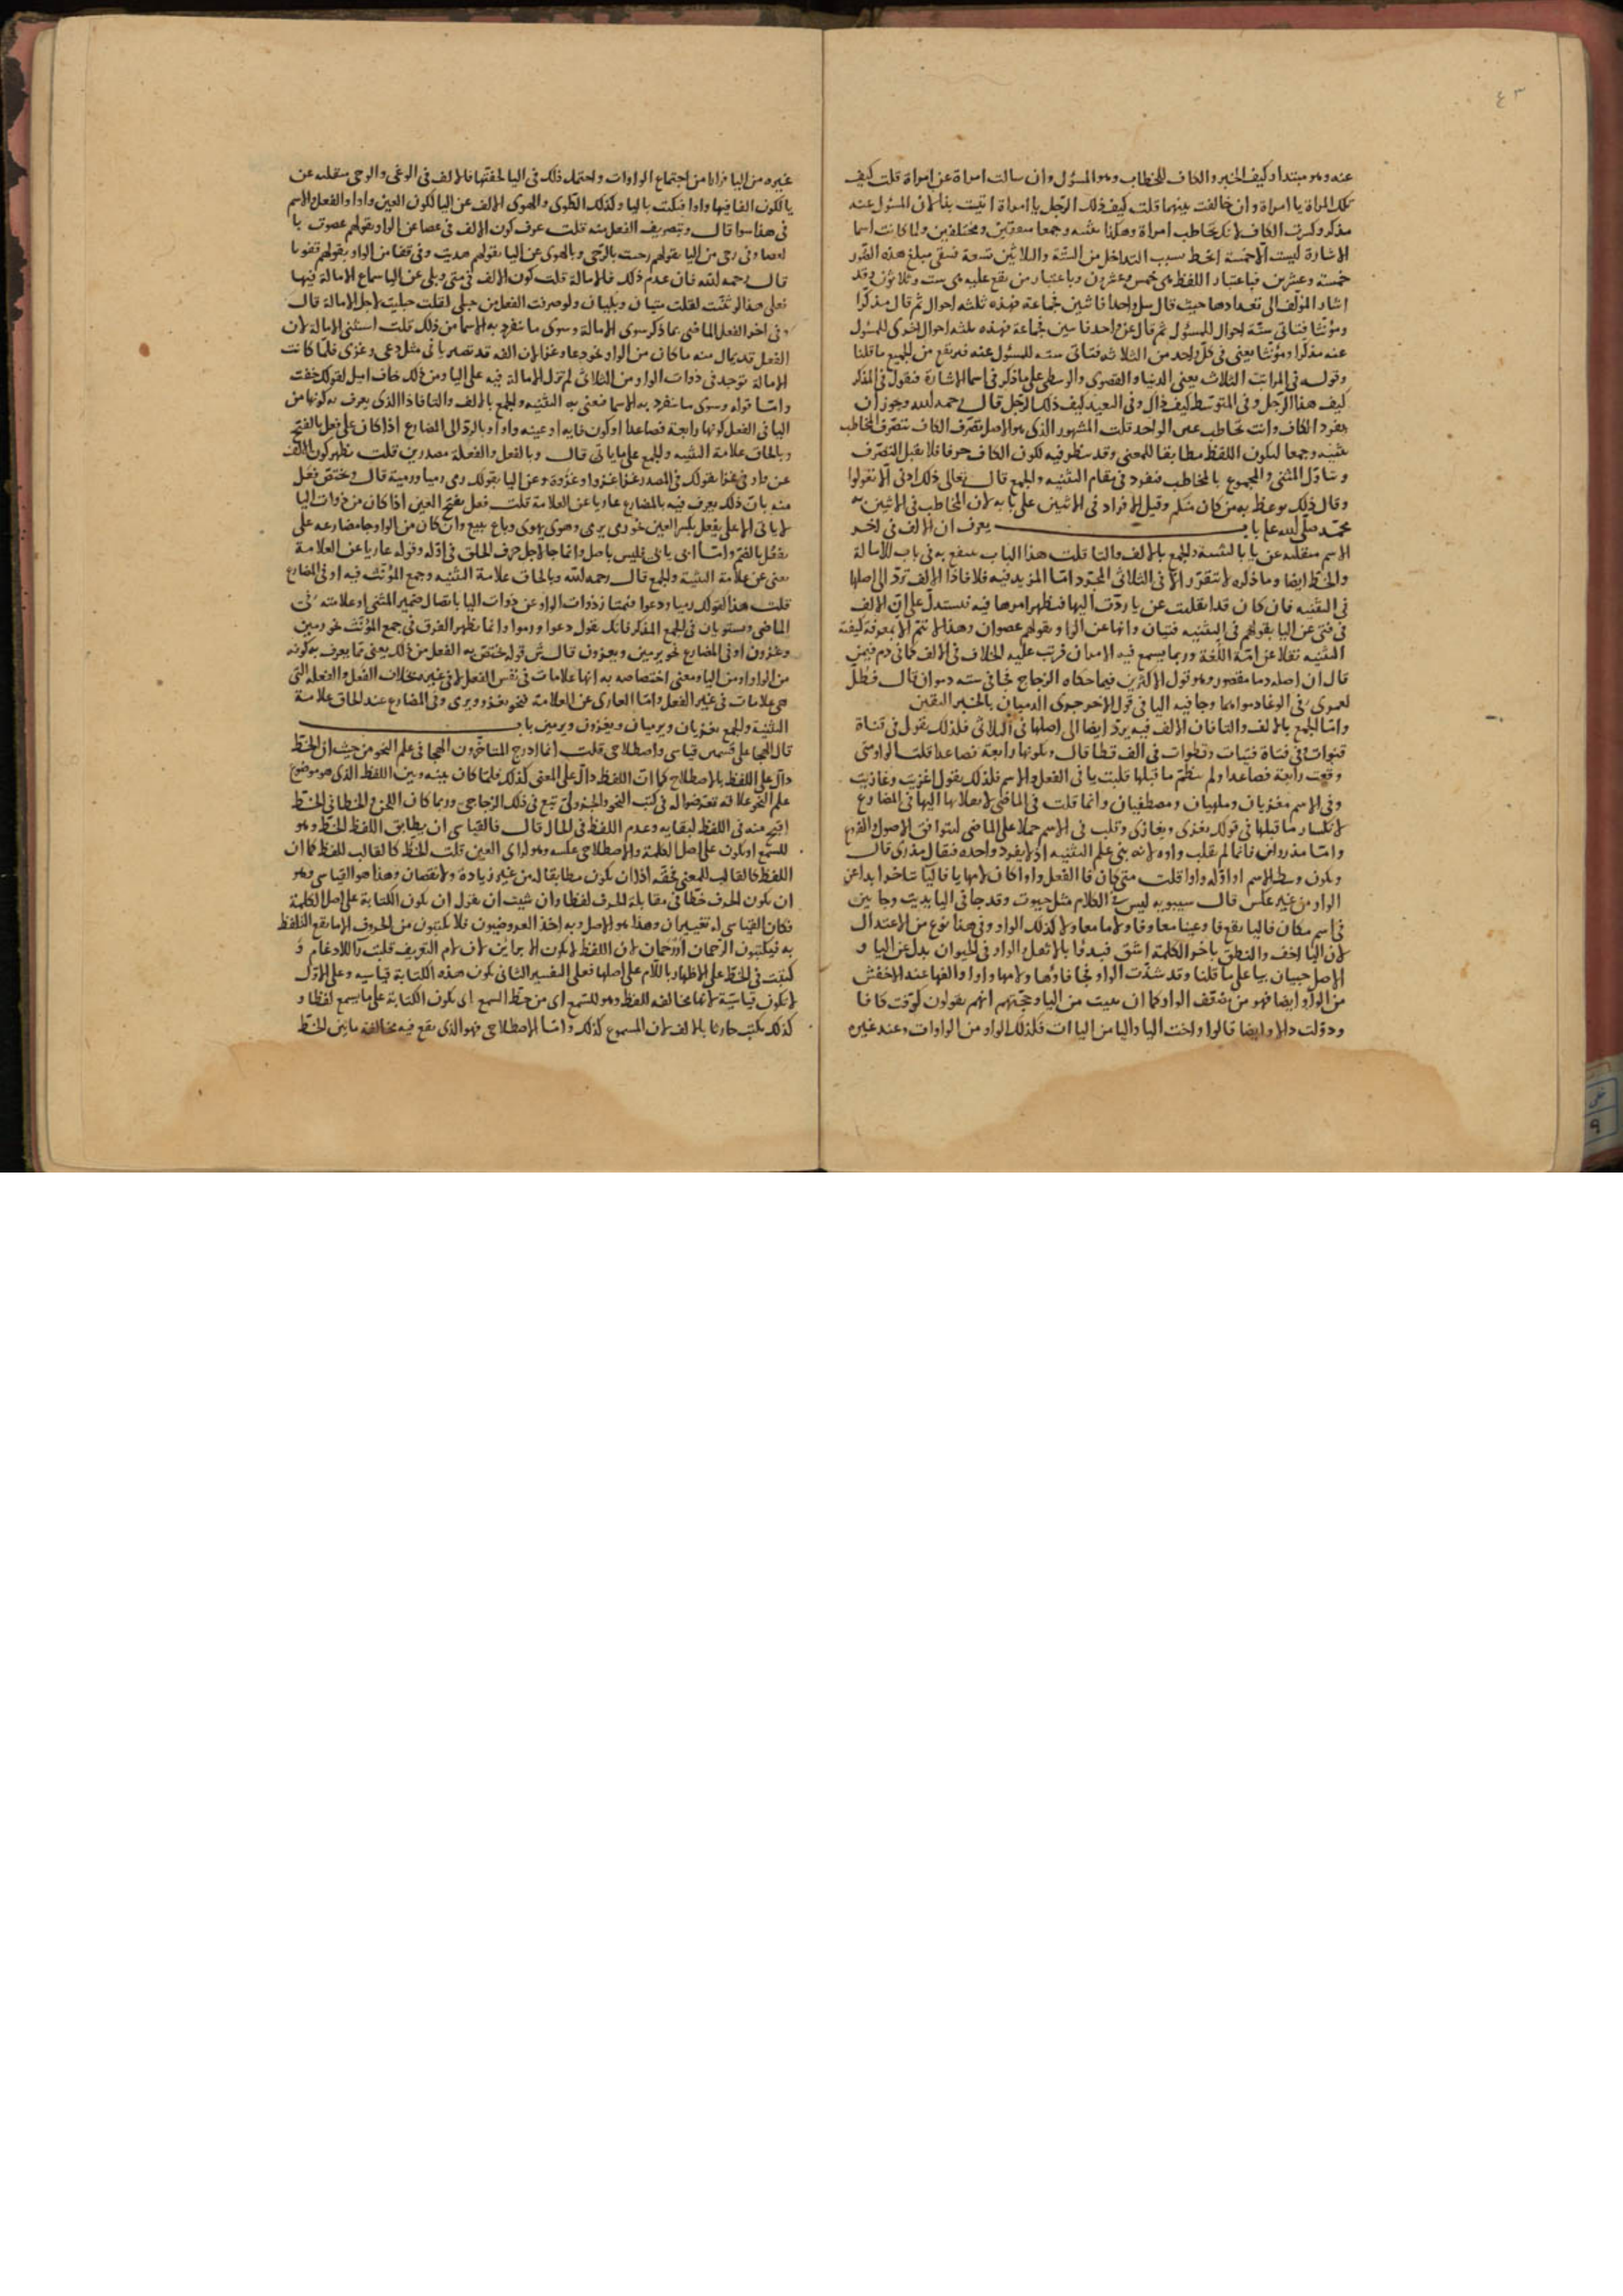 ٤٣
عنه وهو مبتدا وكيف الخبر والكاف للخطاب وهو المسؤل وان سالت امراة عن امراة قلت كيف
تلك المراة يا امراة وان خالفت بينهما قلت كيف ذلك الرجل يا امراة اتيت بذا لان المسئول عنه
مذكر وكسرت الكاف لانك تخاطب امراة وهكذا تثنيه وجمعا متفقين ومختلفين ولما كانت اسما
الاشارة ليست الاخمسة انحط بسبب التداخل من الستة والثلاثين تسعة فبقى مبلغ هذه الصور
خمسة وعشرين فباعتبار اللفظ هي خمس وعشرون وباعتبار من يقع عليه هي ست وثلاثون وقد
اشار المؤلف الى تعدادها حيث قال سل واحدا فاثنين فجماعة فهذه ثلثه احوال ثم قال مذكرا
ومؤنثا فتاتى ستة احوال للمسؤل ثم قال عن واحد فاثنين فجماعة فهذه ثلثه احوال اخرى للمسؤل
عنه مذكرا ومؤنثا يعنى فى كل واحد من الثلاثه فتاتى سته للمسؤل عنه فيرتفع من الجميع ما قلنا
وقوله فى المراتب الثلاث يعنى الدنيا والقصوى والوسطى على ما ذكر فى اسما الاشارة فتقول فى المذكر
كيف هذا الرجل وفى المتوسط كيف ذاك وفى البعيد كيف ذلك الرجل قال رحمه الله وجوز ان
يفرد الكاف وانت تخاطب غير الواحد قلت المشهور الذى هو الاصل تصرف الكاف بتصرف المخاطب
تثنيه وجمعا ليكون اللفظ مطابقا للمعنى وقد ينظر فيه لكون الكاف حرفا فلا يقبل التصرف
ويتاول المثنى والمجموع بالمخاطب فتفرد فى مقام التثنيه والجمع قال تعالى ذلك ادنى الا تعولوا
وقال ذلك يوعظ به من كان منكم وقيل الافراد فى الاثنين على بابه لان المخاطب فى الاثنين به
محمد صلى الله عليه باب يعرف ان الالف فى اخر
الاسم منقلبه عن يا بالتثنيه والجمع بالالف والتا قلت هذا الباب ينتفع به فى باب الامالة
والخط ايضا وما ذكره لا يتقرر الا فى الثلاثى المجرد اما المزيد فيه فلا فاذا الالف ترد الى اصلها
فى التثنيه فان كان قد انقلبت عن يا ردت اليها فيظهر امرها فيه فيستدل على ان الالف
فى فتى عن اليا بقولهم فى التثنيه فتيان وانها عن الواو بقولهم عصوان وهذا لا يتم الا بمعرفة كيفية
التثنيه نقلا عن ائمة اللغة وربما يسمع فيه الامران فرتب عليه الخلاف فى الالف كما فى دم فيمن
قال ان اصله دما مقصور وهو قول الاكثرين فيما حكاه الزجاج فجا فى تثنيته دموان قال فظل
لعمرى فى الوغا دموانهما وجا فيه اليا فى قول الاخر جرى الدميان بالخبر اليقين
واما الجمع بالالف والتا فان الالف فيه يرد ايضا الى اصلها فى الثلاثى فلذلك تقول فى قناة
قنوات وفى فتاة فتيات وقطوات فى الف قطا قال وبكونها رابعة فصاعدا قلت الواو متى
وقعت رابعة فصاعدا ولم ينظم ما قبلها قلبت يا فى الفعل والاسم فلذلك تقول اغزيت وغازيت
وفى الاسم مغزيان وملهيان ومصطفيان وانما قلت فى الماضى لانقلابها اليها فى المضارع
لانكسار ما قبلها فى قولك يغزى ويغازى وقلب فى الاسم حملا على الماضى ليتوافق الاصول الفروع
واما مذروان فانما لم يقلب واوه لانه بنى على التثنيه اذ لا يفرد واحده فيقال مذرى قال
وبكون وسط الاسم او اوله واوا قلت متى كان فا الفعل واوا كان لامها يا فاليا تتاخر ابدا عن
الواو من غير عكس قال سيبويه ليس فى الكلام مثل حيوت وقد جا فى اليا يديت وجا بين
فى اسم مكان فاليا يقع فا وعينا معا وفا ولاما معا ولا كذلك الواو وفى هذا نوع من الاعتدال
لان اليا اخف والنطق باخر الكلمة اشق فبدؤا بالاثقل الواو فى الحيوان بدل عن اليا و
الاصل حييان بيا على ما قلنا وقد شذت الواو فجا فاؤها ولامها واوا والفها عند الاخفش
من الواو ايضا فهو من مضعف الواو كما ان ييت من اليا وحجتهم انهم يقولون كوفت كافا
ودولت دالا وايضا قالوا واخت اليا واليا من اليا ات فكذلك الواو من الواوات وعند غيره
غيره من اليا فرارا من اجتماع الواوات واحتمل ذلك فى اليا لخفتها فالالف فى الوغى والوحى منقلبه عن
يا لكون الفا فيها واوا فكتبت باليا وكذلك الطوى والهوى الالف عن اليا لكون العين واوا والفعل والاسم
فى هذا سوا قال وبتصريف الفعل منه قلت عرف كون الالف فى عصا عن الواو بقولهم عصوت با
لعصا وفى رحى من اليا بقولهم رحيت بالرحى وبالهوى عن اليا بقولهم هديت وفى قفا من الواو بقولهم قفوت
قال رحمه الله فان عدم ذلك فالامالة قلت كون الالف فى متى وبلى عن اليا سماع الامالة فيها
فعلى هذا لو ثنيت لقلت متيان وبليان ولو صرفت الفعل من حبلى لقلت حبليت لاجل الامالة قال
وفى اخر الفعل الماضى بما ذكر سوى الامالة وسوى ما ينفرد به الاسما من ذلك قلت استثنى الامالة لان
الفعل قد يمال منه ما كان من الواو نحو دعا وغزا لان الفه قد تصير يا فى مثل دعى وغزى فلما كانت
الامالة توجد فى ذوات الواو من الثلاثى لم تدل الامالة فيه على اليا ومن ذلك خاف اميل لقولك خفت
واما قوله وسوى ما ينفرد به الاسما فعنى به التثنيه والجمع بالالف والتا فاذا الذى يعرف به كونها من
اليا فى الفعل كونها رابعة فصاعدا او كون فايه او عينه واوا وبالرد الى المضارع اذا كان على فعل بالفتح
وبالحاق علامة التثنيه والجمع على ما ياتى قال وبالفعل والفعلة مصدرين قلت يظهر كون الالف
عن واو فى غزا بقولك فى المصدر غزا غزوا وغزوة وعن اليا بقولك رمى رميا ورمية قال ويختص فعل
منه بان ذلك يعرف فيه بالمضارع عاريا عن العلامة قلت فعل بفتح العين اذا كان من ذوات اليا
لا ياتى الا على يفعل بكسر العين نحو رمى يرمى وهوى يهوى وباع يبيع وان كان من الواو جا مضارعه على
يفعل بالضم واما ابى يابى فليس باصل وانما جا لاجل حرف الحلق فى اوله وقوله عاريا عن العلامة
يعنى عن علامة التثنية والجمع قال رحمه الله وبالحاق علامة التثنيه وجمع المؤنث فيه او فى المضارع
قلت هذا كقولك رميا ودعوا فيمتاز ذوات الواو عن ذوات اليا باتصال ضمير المثنى او علامته فى
الماضى ويستويان فى الجمع المذكر فانك تقول دعوا ورموا وانما يظهر الفرق فى جمع المؤنث نحو رمين
وغزون او فى المضارع نحو يرمين ويغزون قال ثم قوله يختص به الفعل من ذلك يعنى مما يعرف به كونه
من الواو او من اليا ومعنى اختصاصه به انها علامات فى نفس الفعل لا فى غيره بخلاف الفعل والفعلة التى
هى علامات فى غير الفعل واما العارى عن العلامة فنحو يغزو ويرمى وفى المضارع عند الحاق علامة
التثنية والجمع يغزيان ويرميان ويغزون ويرمين باب
قال الهجا على قسمين قياسى واصطلاحى قلت انما ادرج المتاخرون الهجا فى علم النحو من حيث ان الخط
دال على اللفظ بالاصطلاح كما ان اللفظ دال على المعنى كذلك فلما كان بينه وبين اللفظ الذى هو موضوع
علم النحو علاقة تعرضوا له فى كتب النحو والجزولى تبع فى ذلك الزجاجى وربما كان اللحن والخطا فى الخط
اقبح منه فى اللفظ لبقايه وعدم اللفظ فى الحال قال فالقياسى ان يطابق اللفظ الخط وهو
للسمع او يكون على اصل الكلمة والاصطلاحى عكسه وهو لراى العين قلت الخط كالقالب للفظ كما ان
اللفظ كالقالب للمعنى فحقه اذا ان يكون مطابقا له من غير زيادة ولا نقصان وهذا هو القياسى وهو
ان يكون الحرف خطا فى مقابلة الحرف لفظا وان شيت ان تقول ان يكون الكتابة على اصل الكلمة
فكان القياسى له تفسيران وهذا هو الاصل وبه اخذ العروضيون فلا يكتبون من الحروف الا ما يقع التلفظ
به فيكتبون الرحمان اررحمان لان اللفظ لا يكون الا براين لان لام التعريف قلبت را للادغام و
كتبت فى الخط على الاظهار باللام على اصلها فعلى التفسير الثانى يكون هذه الكتابة قياسيه وعلى الاول
لا يكون قياسية لانها مخالفه للفظ وهو للسمع اى من حظ السمع اى يكون الكتابة على ما يسمع لفظا و
كذلك يكتب حارثا بالالف لان المسموع كذلك واما الاصطلاحى فهو الذى يقع فيه مخالفة ما بين الخط